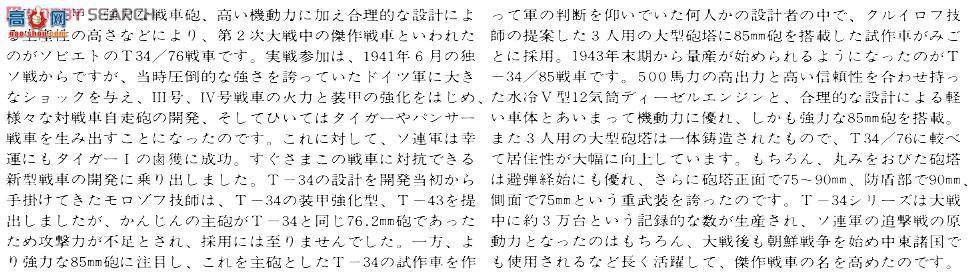 戦車砲、高い機動力に加え合理的な設計によ
の高さなどにより、第2次大戦中の傑作戦車といわれた
のがソビエトのT34/76戦車です。実戦参加は、1941年6月の独
ソ戦からですが、当時圧倒的な強さを誇っていたドイツ軍に大き
なショックを与え、III号、IV号戦車の火力と装甲の強化をはじめ、
様々な対戦車自走砲の開発、そしてひいてはタイガーやパンサー
戦車を生み出すことになったのです。これに対して、ソ連軍は幸
運にもタイガーIの鹵獲に成功。すぐさまこの戦車に対抗できる
新型戦車の開発に乗り出しました。T-34の設計を開発当初から
手掛けてきたモロゾフ技師は、T-34の装甲強化型、T-43を提
出しましたが、かんじんの主砲がT-34と同じ76.2mm砲であった
ため攻撃力が不足とされ、採用には至りませんでした。一方、よ
り強力な85mm砲に注目し、これを主砲としたT-34の試作車を作
って軍の判断を仰いでいた何人かの設計者の中で、クルイロフ技
師の提案した3人用の大型砲塔に85mm砲を搭載した試作車がみご
とに採用。1943年末期から量産が始められるようになったのがT
-34/85戦車です。500馬力の高出力と高い信頼性を合わせ持っ
た水冷V型12気筒ディーゼルエンジンと、合理的な設計による軽
い車体とあいまって機動力に優れ、しかも強力な85mm砲を搭載。
また3人用の大型砲塔は一体鋳造されたもので、T34/76に較べ
て居住性が大幅に向上しています。もちろん、丸みをおびた砲塔
は避弾経始にも優れ、さらに砲塔正面で75~90mm、防盾部で90mm、
側面で75mmという重武装を誇ったのです。T-34シリーズは大戦
中に約3万台という記録的な数が生産され、ソ連軍の追撃戦の原
動力となったのはもちろん、大戦後も朝鮮戦争を始め中東諸国で
も使用されるなど長く活躍して、傑作戦車の名を高めたのです。